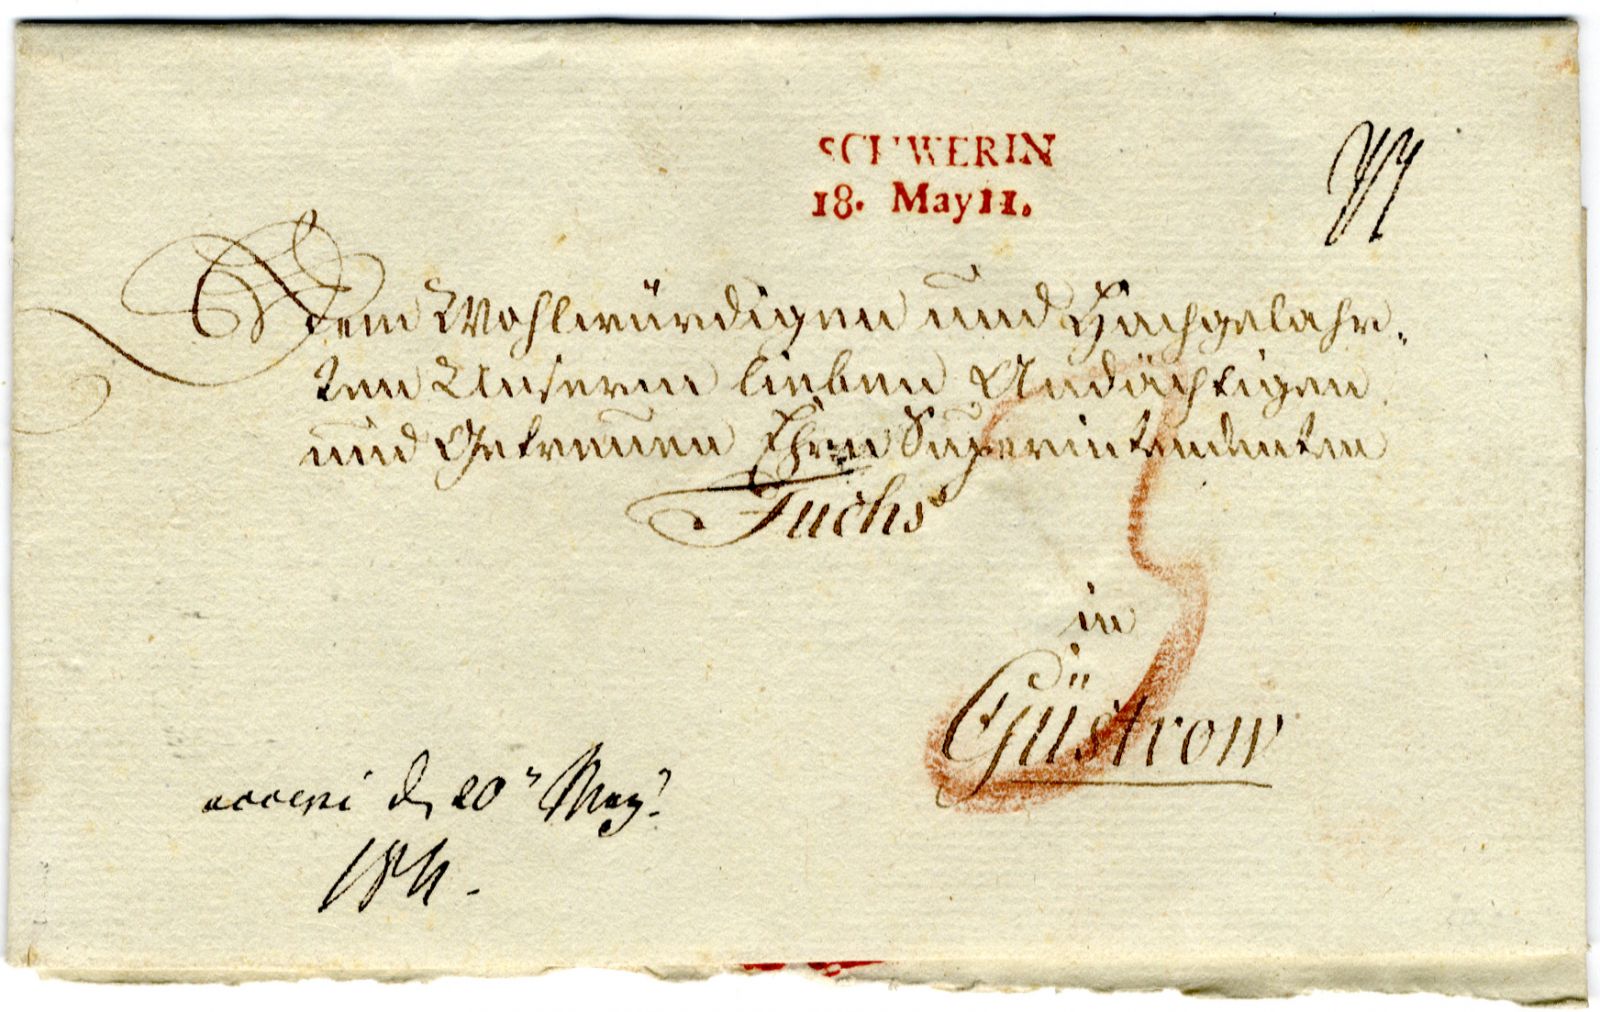 SCHWERIN
18. May 11.
Dem Wohlwürdigen und Hochgelahr-
ten Unserm lieben Andächtigen
und Getreuen Ehrn Superintendenten
Fuchs
in
Güstrow
5
d. 20ᵗ May.
1811.